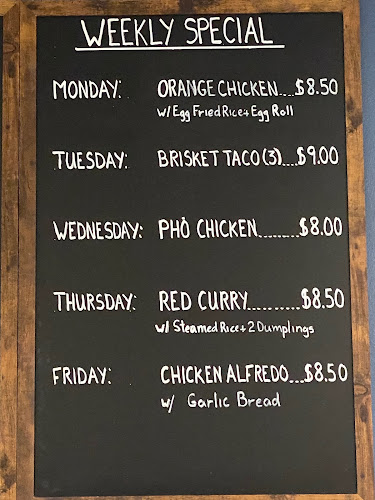 WEEKLY SPECIAL
MONDAY: ORANGE CHICKEN....$8.50
W/ Egg Fried Rice + Egg Roll
TUESDAY: BRISKET TACO (3)....$9.00
WEDNESDAY: PHỞ CHICKEN.........$8.00
THURSDAY: RED CURRY..........$8.50
W/ Steamed Rice + 2 Dumplings
FRIDAY: CHICKEN ALFREDO...$8.50
W/ Garlic Bread